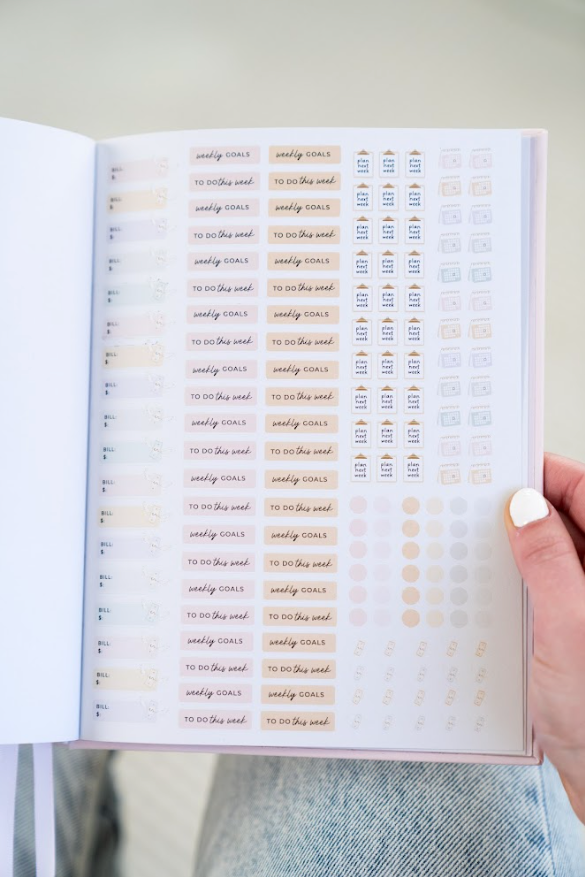 BILL:
$
BILL:
$
BILL:
$
BILL:
$
BILL:
$
BILL:
$
BILL:
$
BILL:
$
BILL:
$
BILL:
$
BILL:
$
BILL:
$
BILL:
$
BILL:
$
BILL:
$
BILL:
$
BILL:
$
BILL:
$
weekly GOALS weekly GOALS
TO DO this week TO DO this week
weekly GOALS weekly GOALS
TO DO this week TO DO this week
weekly GOALS weekly GOALS
TO DO this week TO DO this week
weekly GOALS weekly GOALS
TO DO this week TO DO this week
weekly GOALS weekly GOALS
TO DO this week TO DO this week
weekly GOALS weekly GOALS
TO DO this week TO DO this week
weekly GOALS weekly GOALS
TO DO this week TO DO this week
weekly GOALS weekly GOALS
TO DO this week TO DO this week
weekly GOALS weekly GOALS
TO DO this week TO DO this week
weekly GOALS weekly GOALS
TO DO this week TO DO this week
weekly GOALS weekly GOALS
TO DO this week TO DO this week
plan plan plan
next next next
week week week
plan plan plan
next next next
week week week
plan plan plan
next next next
week week week
plan plan plan
next next next
week week week
plan plan plan
next next next
week week week
plan plan plan
next next next
week week week
plan plan plan
next next next
week week week
plan plan plan
next next next
week week week
plan plan plan
next next next
week week week
plan plan plan
next next next
week week week